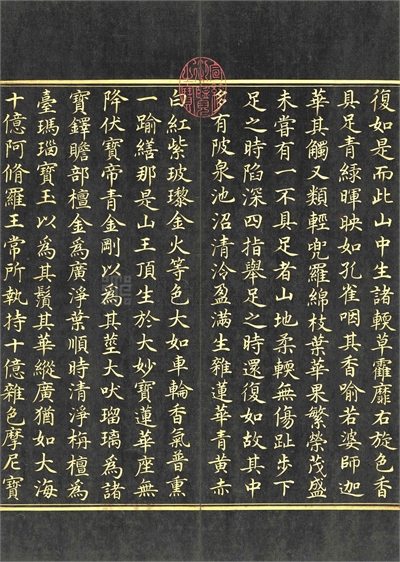 復如是而此山中生諸輭草靃靡右旋色香
具足青綠暉映如孔雀咽其香喻若婆師迦
華其觸又類輕兜羅綿枝葉華果繁榮茂盛
未嘗有一不具足者山地柔輭無傷趾步下
足之時陷深四指舉足之時還復如故其中
多有陂泉池沼清泠盈滿生雜蓮華青黃赤
白紅紫玻瓈金火等色大如車輪香氣普熏
一踰繕那是山王頂生於大妙寶蓮華座無
降伏寶帝青金剛以為其莖大吠瑠璃為諸
寶鐸贍部檀金為廣淨葉順時清淨栴檀為
臺瑪瑙寶王以為其鬚其華縱廣猶如大海
十億阿脩羅王常所執持十億雜色摩尼寶